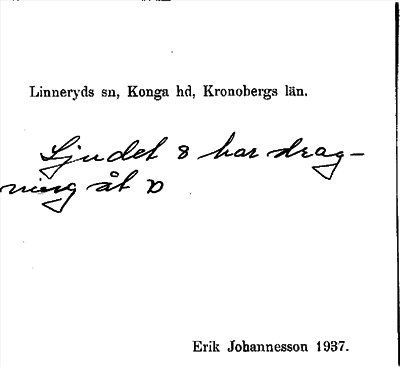 Linneryds sn, Konga hd, Kronobergs län.
Ljudet 8 har drag-
ning åt
Erik Johannesson 1937.